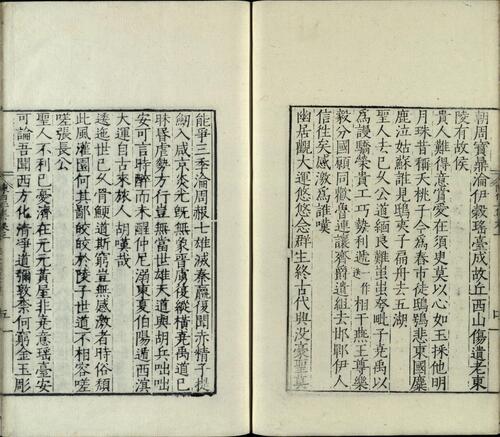 朝周寶鼎淪伊穀瑤臺成故丘西山傷遺老東
陵有故侯
貴人難得意賞愛在須臾莫以心如玉探他明
月珠昔稱夭桃子今為舂市徒鴟鴞悲東國麋
鹿泣姑蘇誰見鴟夷子扁舟去五湖
聖人去已久公道緬良難蚩蚩夸毗子堯禹以
為謾驕榮貴工巧勢利遞相干燕王尊樂
毅分國願同歡魯連讓齊爵遺組去邯鄲伊人
信往矣感激為誰嘆
幽居觀大運悠悠念群生終古代興沒豪聖莫
能爭三季淪周赧七雄滅秦嬴復聞赤精子提
劒入咸京炎光既無象晉虜復縱橫堯禹道已
昧昏虐勢方行豈無當世雄天道與胡兵咄咄
安可言時醉而未醒仲尼溺東夏伯陽遁西溟
大運自古來旅人胡嘆哉
逶迤世已久骨鯁道斯窮豈無感激者時俗頹
此風灌園何其鄙皎皎於陵子世道不相容嗟
嗟張長公
聖人不利己憂濟在元元黃屋非堯意瑤臺安
可論吾聞西方化清淨道彌敦奈何窮金玉彫